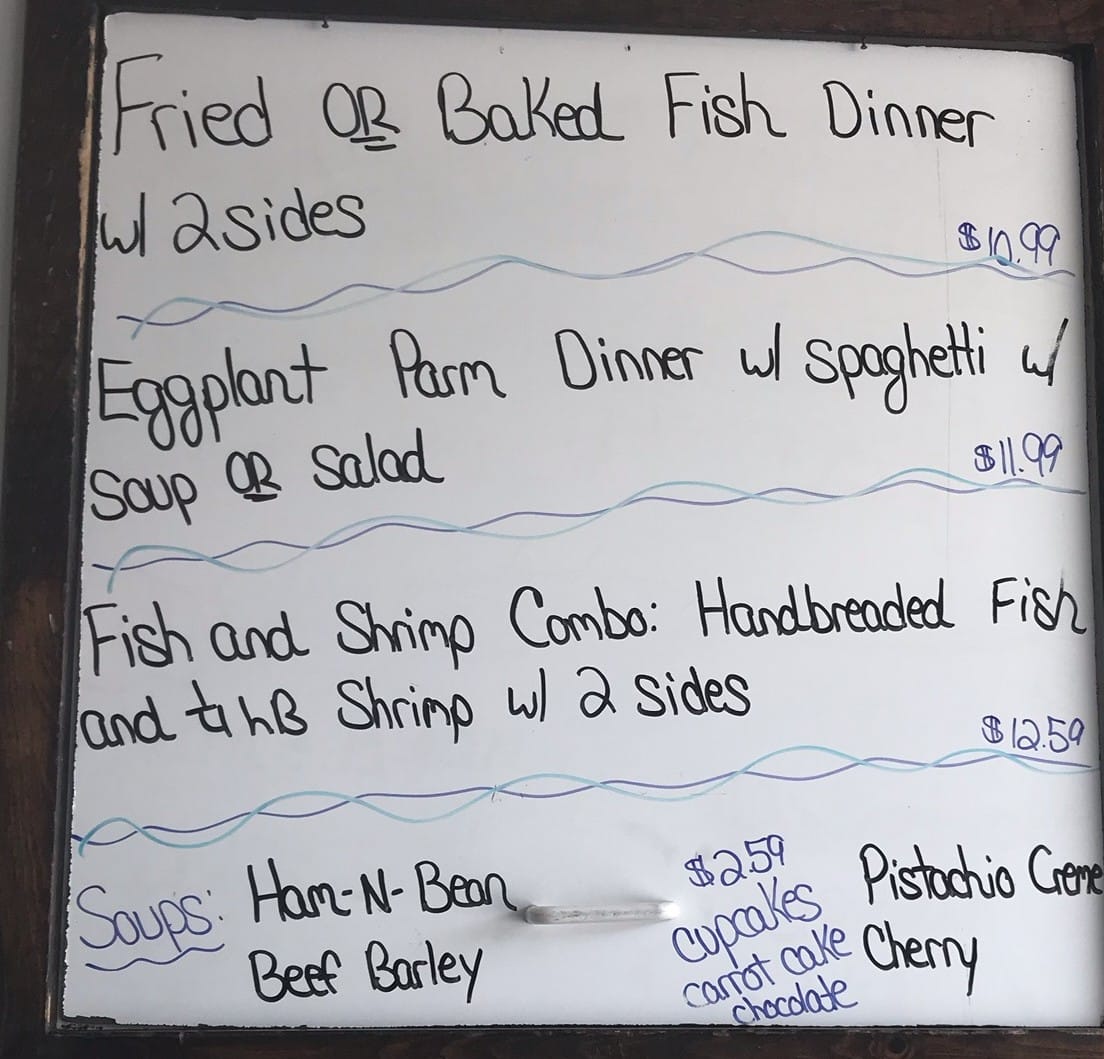 Fried OR Baked Fish Dinner
w/ 2 sides
$10.99
Eggplant Parm Dinner w/ spaghetti w/
Soup OR Salad
$11.99
Fish and Shrimp Combo: Handbreaded Fish
and Shrimp w/ 2 sides
$12.59
Soups: Ham-N-Bean
Beef Barley
$2.59
cupcakes
carrot cake
chocolate
Pistachio Creme
Cherry